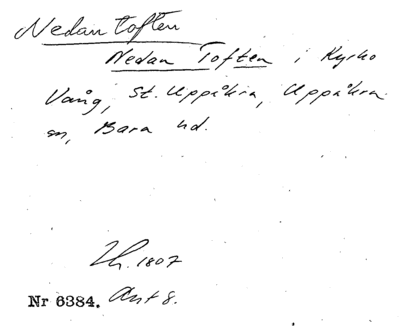 Nedan toften
Nedan Toften i Kyrko
Vång, St. Uppåkra, Uppåkra
sn, Bara hd.
Lh. 1807
Nr 6384. Akt 8.